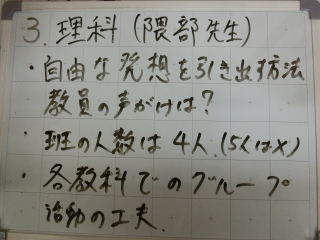 3. 理科 (隈部先生)
・自由な発想を引き出す方法
教員の声がけは?
・班の人数は4人.(5人は×)
・各教科でのグループ
活動の工夫.